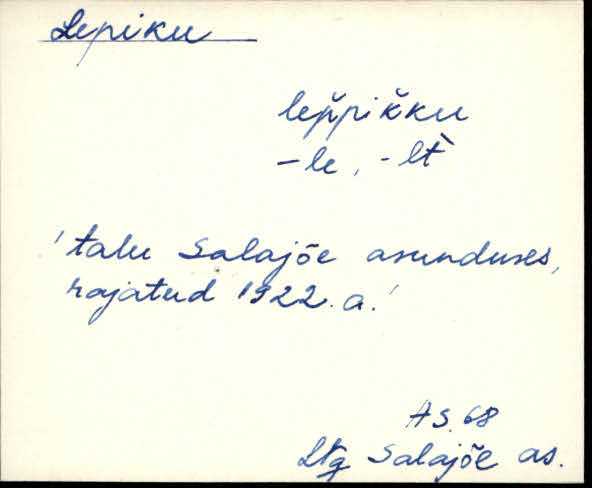 Lepiku
lep̆pik̆ku
-le, -lt̀
'talu Salajõe asunduses,
rajatud 1922. a.'
AS. 68
Ltg Salajõe as.